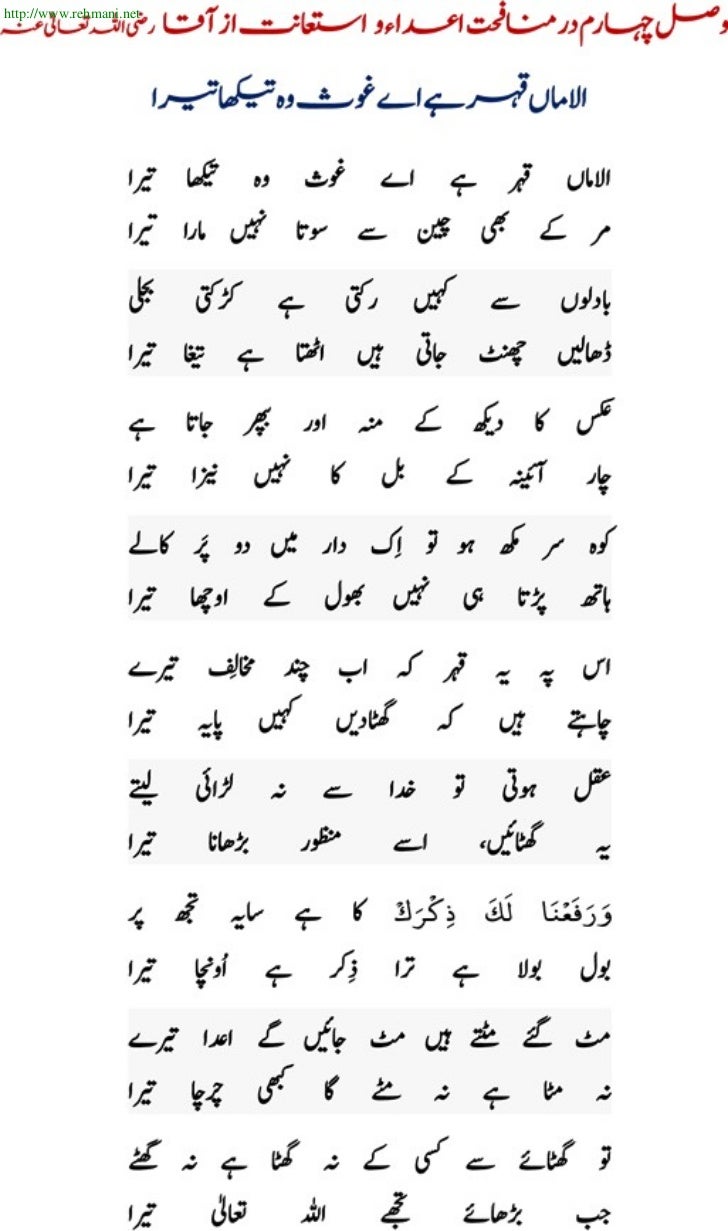 http://www.rehmani.net
وصل چہارم در منافحت اعداء و استعانت از آقا رضی اللہ تعالیٰ عنہ
الاماں قہر ہے اے غوث وہ تیکھا تیرا
الاماں قہر ہے اے غوث وہ تیکھا تیرا
مر کے بھی چین سے سوتا نہیں مارا تیرا
بادلوں سے کہیں رکتی ہے کڑکتی بجلی
ڈھالیں چھنٹ جاتی ہیں اٹھتا ہے تیغا تیرا
عکس کا دیکھ کے منہ اور بپھر جاتا ہے
چار آئینہ کے بل کا نہیں نیزا تیرا
کوہ سر مکھ ہو تو اِک دار میں دو پَر کالے
ہاتھ پڑتا ہی نہیں بھول کے اوچھا تیرا
اس پہ یہ قہر کہ اب چند مخالِف تیرے
چاہتے ہیں کہ گھٹادیں کہیں پایہ تیرا
عقل ہوتی تو خدا سے نہ لڑائی لیتے
یہ گھٹائیں، اسے منظور بڑھانا تیرا
وَرَفَعْنَا لَكَ ذِكْرَكَ کا ہے سایہ تجھ پر
بول بولا ہے ترا ذِکر ہے اُونچا تیرا
مٹ گئے مٹتے ہیں مٹ جائیں گے اعدا تیرے
نہ مٹا ہے نہ مٹے گا کبھی چرچا تیرا
تو گھٹائے سے کسی کے نہ گھٹا ہے نہ گھٹے
جب بڑھائے تجھے اللہ تعالیٰ تیرا